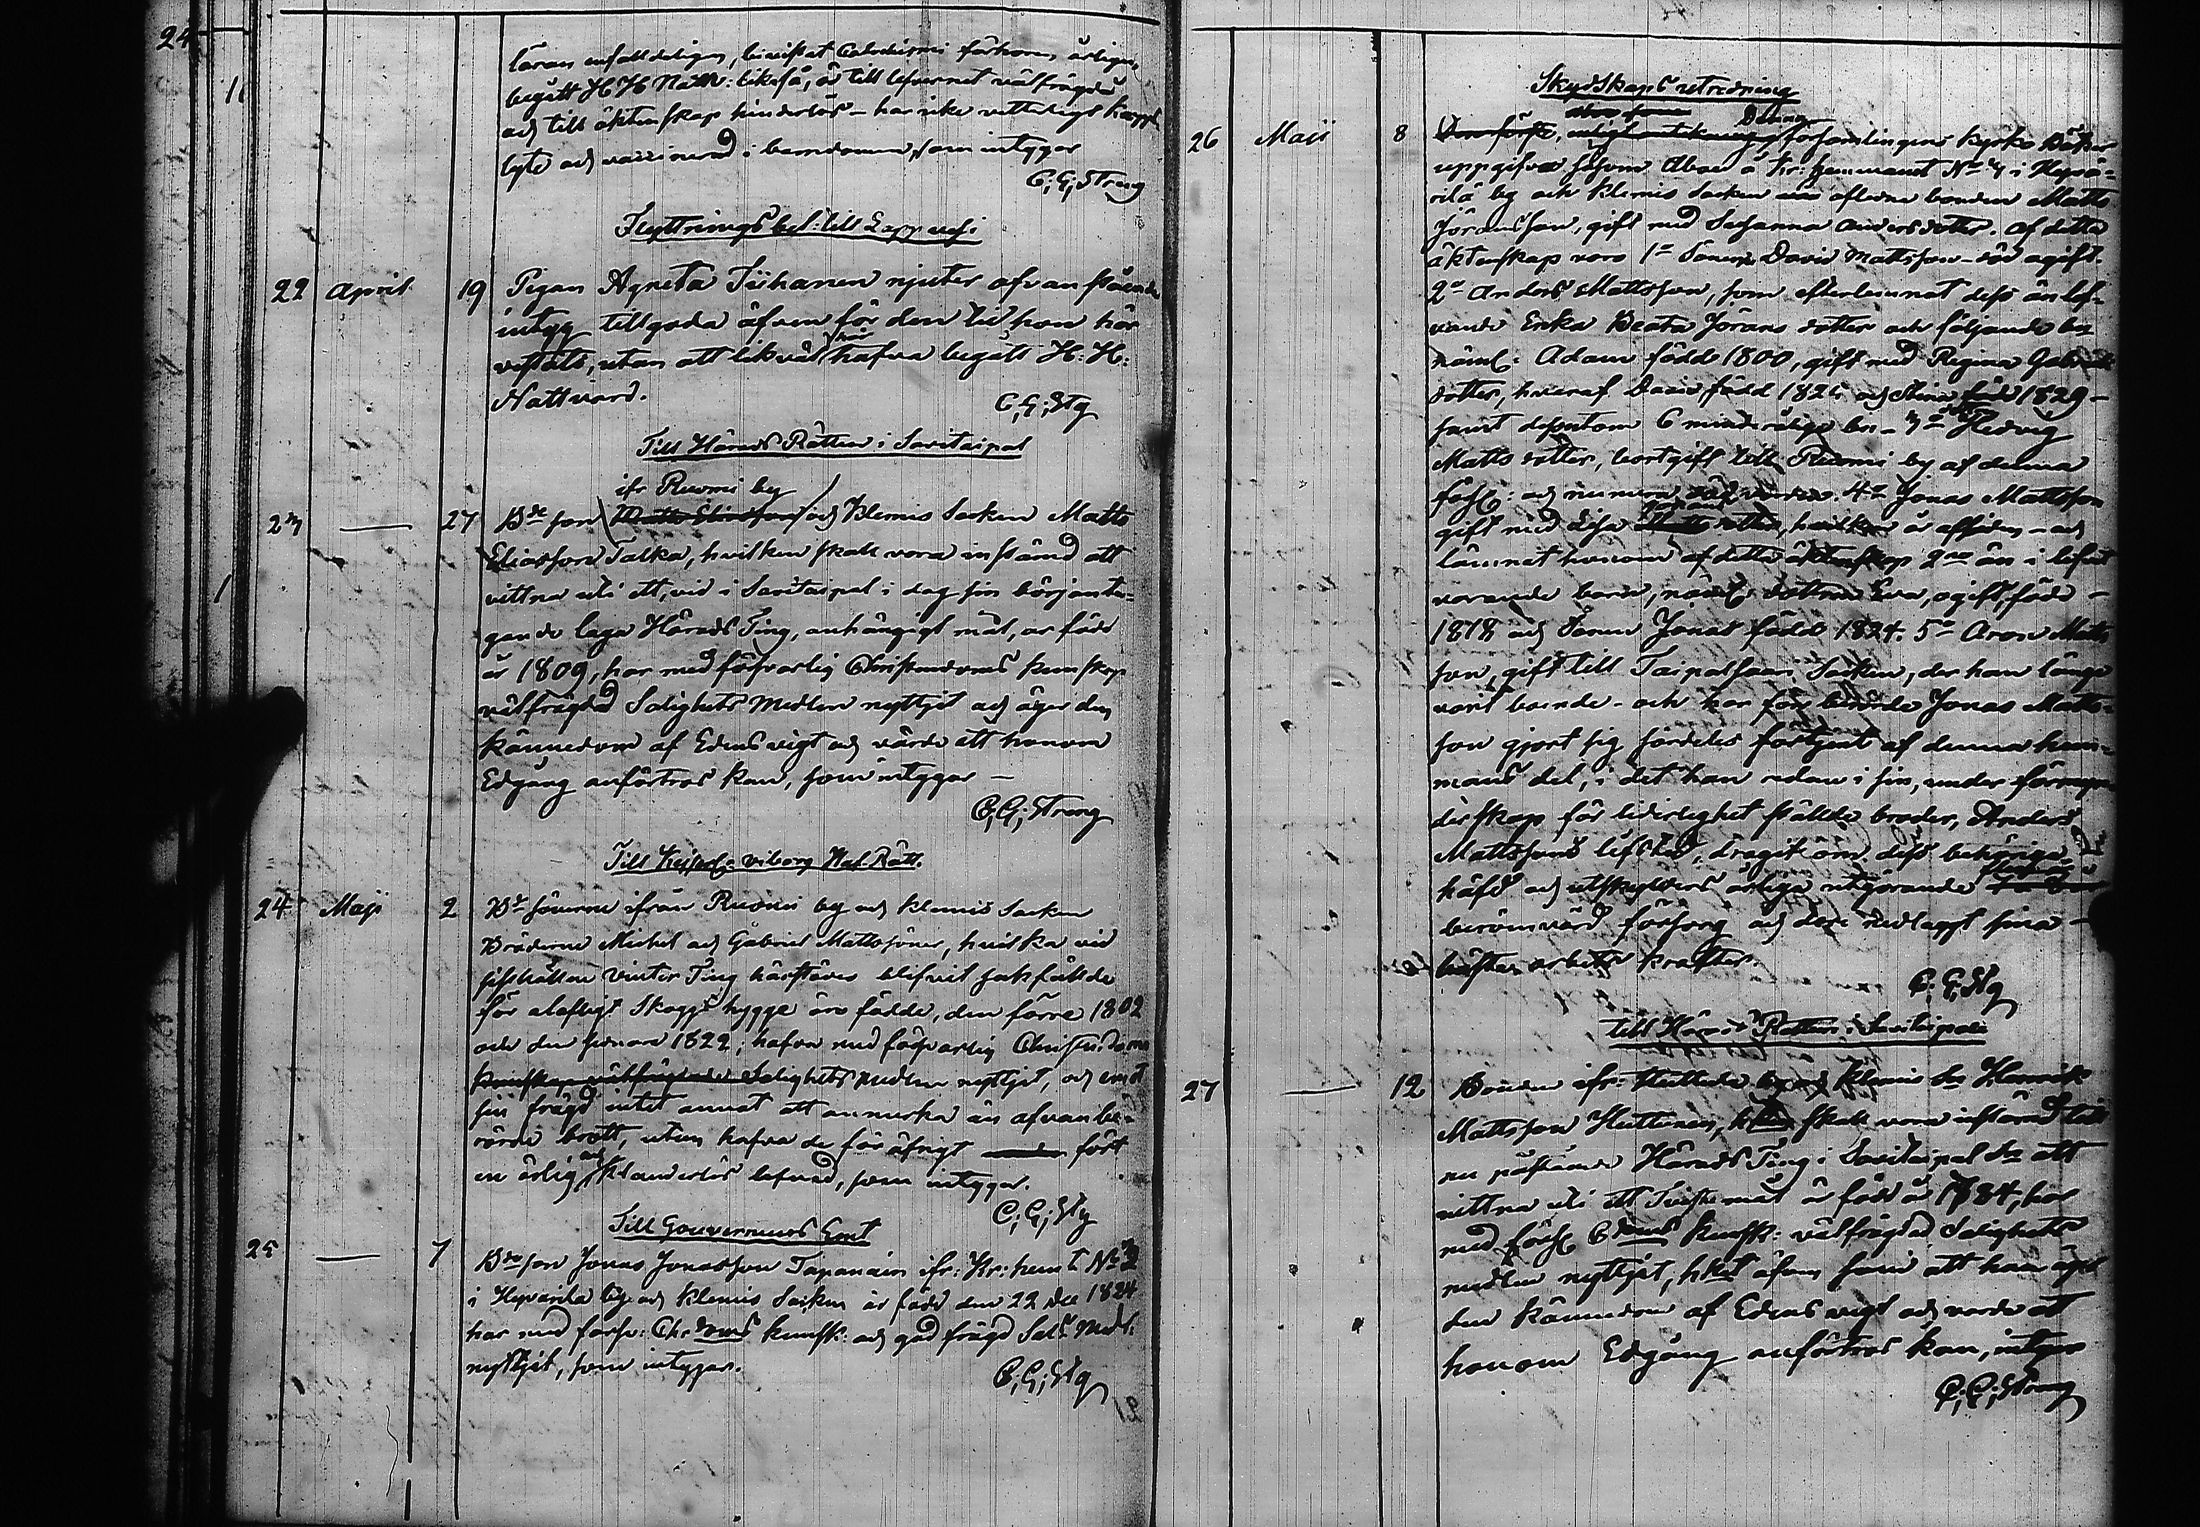 24
11
läran enfalldeligen, bivistat Catechismi förhören årligen,
begått H H Nattv: likaså, är till lefvernet välfrägdad
och till äktenskap hinderlös - har icke vetterligt kropps
lyte och vaccinerad i barndomen, som intygar
C; G; Streng
Flyttnings bet: till Lappvesi
22 April 19 Pigan Agneta Tiihanen njuter ofvanstående
intyg tillgodo äfven för den tid hon här
vistats, utan att likväl här hafva begått H: H:
Nattvard.
C; G; Stg
Till Härads Rätten i Savitaipal
ifr Ruomi by
23 — 27 Bde son och Klemis Socken Matts
Eliasson Talka, hvilken skall vara instämd att
vittna uti ett, vid i Savitaipal i dag sin början ta-
gande laga Härads Ting, anhängigt mål, är född
år 1809, har med försvarlig Christendoms kunskap
välfrägdad Salighets Medlen nyttjat och äger den
kännedom af Edens vigt och värde att honom
Edgång anförtros kan, som intygar —
C; G; Streng
Till Keiserl: Viborg Hof Rätt.
24 Maji 2 Bdesönerne ifrån Ruomi by och Klemis Socken
Bröderne Michel och Gabriel Mattssöner, hvilka vid
sisthållne Vinter Ting härstädes blifvit sakfällde
för olofligt Skogshygge äro födde, den förre 1802
och den senare 1822, hafva med försvarlig Christendoms
kunskap välfrägdade Salighets Medlen nyttjat, och emot
sin frägd intet annat att anmärka än ofvanbe-
rörde brott, utan hafva de för öfrigt fört
en ärlig och klanderlös lefnad, som intygar.
C; G; Stg
Till Gouvernements Cont
25 — 7 Bdeson Jonas Jonasson Tapanain ifr: Kr: hemt No 2
i Hyvärilä by och Klemis Socken är född den 22 Dec 1824
har med försv: Chr doms kunsk: och god frägd Sal: Medl:
nyttjat, som intygar.
C; G; Stg
Skyldskaps utredning
26 Maji 8 Denna församlingens kyrko Böcker
uppgifva såsom Åbor å Kr: hemmanet No 4 i Hyvä-
rilä by och Klemis Socken aflidne bonden Matts
Jöransson, gift med Susanna Anders dotter. Af detta
äktenskap voro 1o Sonen David Mattsson - död ogift.
2o Anders Mattsson, som efterlemnat dess än lef-
vande Enka Beata Jörans dotter och följande barn
näml: Adam född 1800, gift med Regina Gabriels
dotter, hvaraf David född 1825 och Stina född 1829 -
samt dessutom 6 minderåriga barn - 3o Hedvig
Matts dotter, bortgift till Ruomi by af denna
förs: och numera 4o Jonas Mattsson
gift med Lisa dotter, hvilken är afliden - och
lämnat honom af detta äktenskap 2ne än i lifvet
varande barn, näml: dottren Eva, ogift, född -
1818 och Sonen Jonas född 1824. 5o Aron Matts
son, gift till Taipalsaari Socken, der han länge
varit boende - och har förberörde Jonas Matts-
son gjort sig särdeles förtjent af denna hem-
mans del, i det han redan i sin, under förmyn-
derskap för liderlighet ställde broder, Anders
Mattssons lifstid, dragit om dess behöriga
häfd och utskylders årliga utgörande
berömvärd försorg och der nedlagt sina -
bästa arbets krafter.
C; G; Stg
Till Härads Rätten i Savitaipale
27 — 12 Bonden ifr: Huttula by och Klemis Sn Henrik
Mattsson Huttunen, hken skall vara instämd till
nu påstående Härads Ting i Savitaipal Sn att
vittna uti ett Tviste mål är född år 1784, har
med försv C doms kunsk: välfrägdad Salighets
medlen nyttjat, hket äfven som att han äger
den kännedom af Edens vigt och värde att
honom Edgång anförtros kan, intygar
C; G; Streng